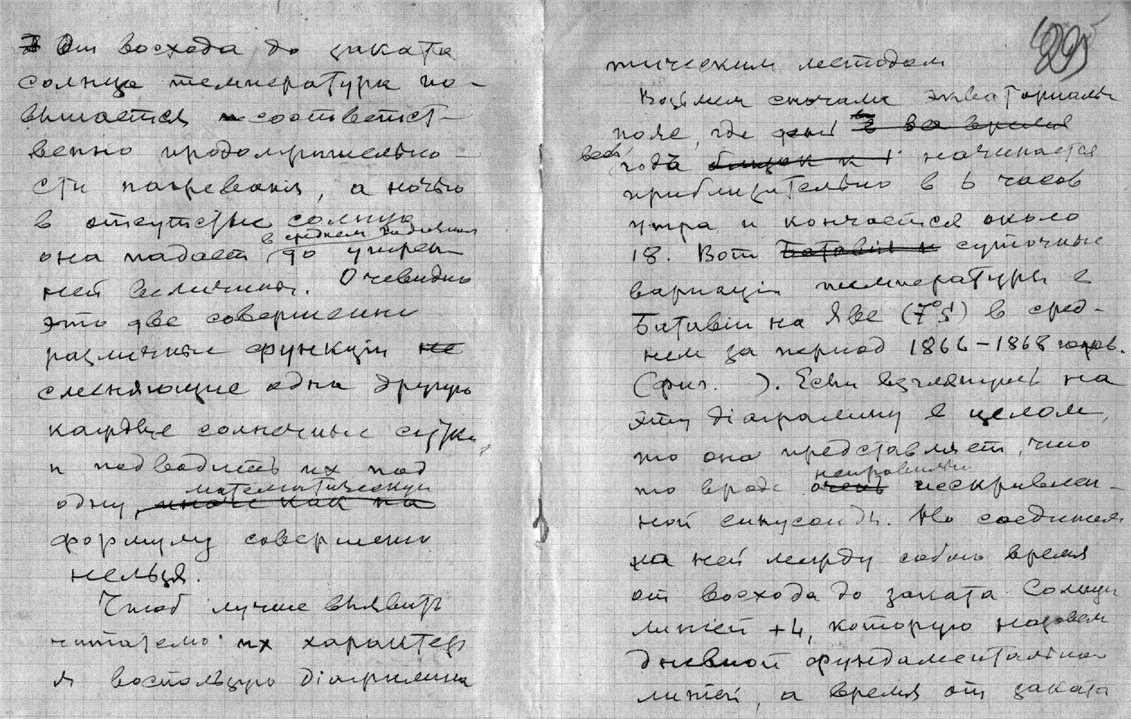 От восхода до заката
солнца температура по-
вышается соответст-
венно продолжительно-
сти нагревания, а ночью
в отсутствие солнца
она падает до утрен-
в среднем
ней величины. Очевидно
это две совершенно
различные функции не
сменяющие одна другую
каждые солнечные сутки,
и подводить их под
математическую
одну, иначе как на
формулу совершенно
нельзя.
Чтоб лучше выявить
читателю их характер
я воспользуюсь діаграмма
тическим методом
Возьмем сначала экваториальн
пояс, где день в во время
весь года близок к начинается
приблизительно в 6 часов
утра и кончается около
18. Вот Батавіи и суточные
варіаціи температуры в
Батавіи на Яве (7°S) в сред-
нем за період 1866–1868 годов.
(фиг. ). Если взглянуть на
эту діаграмму в целом,
то она представляет, что
неправильно
то вроде очень искривлен-
ной синусоиды. Но соединяя
на ней между собою время
от восхода до заката Солнца
линіей +4, которую назовем
дневной фундаментальной
линіей, а время от заката